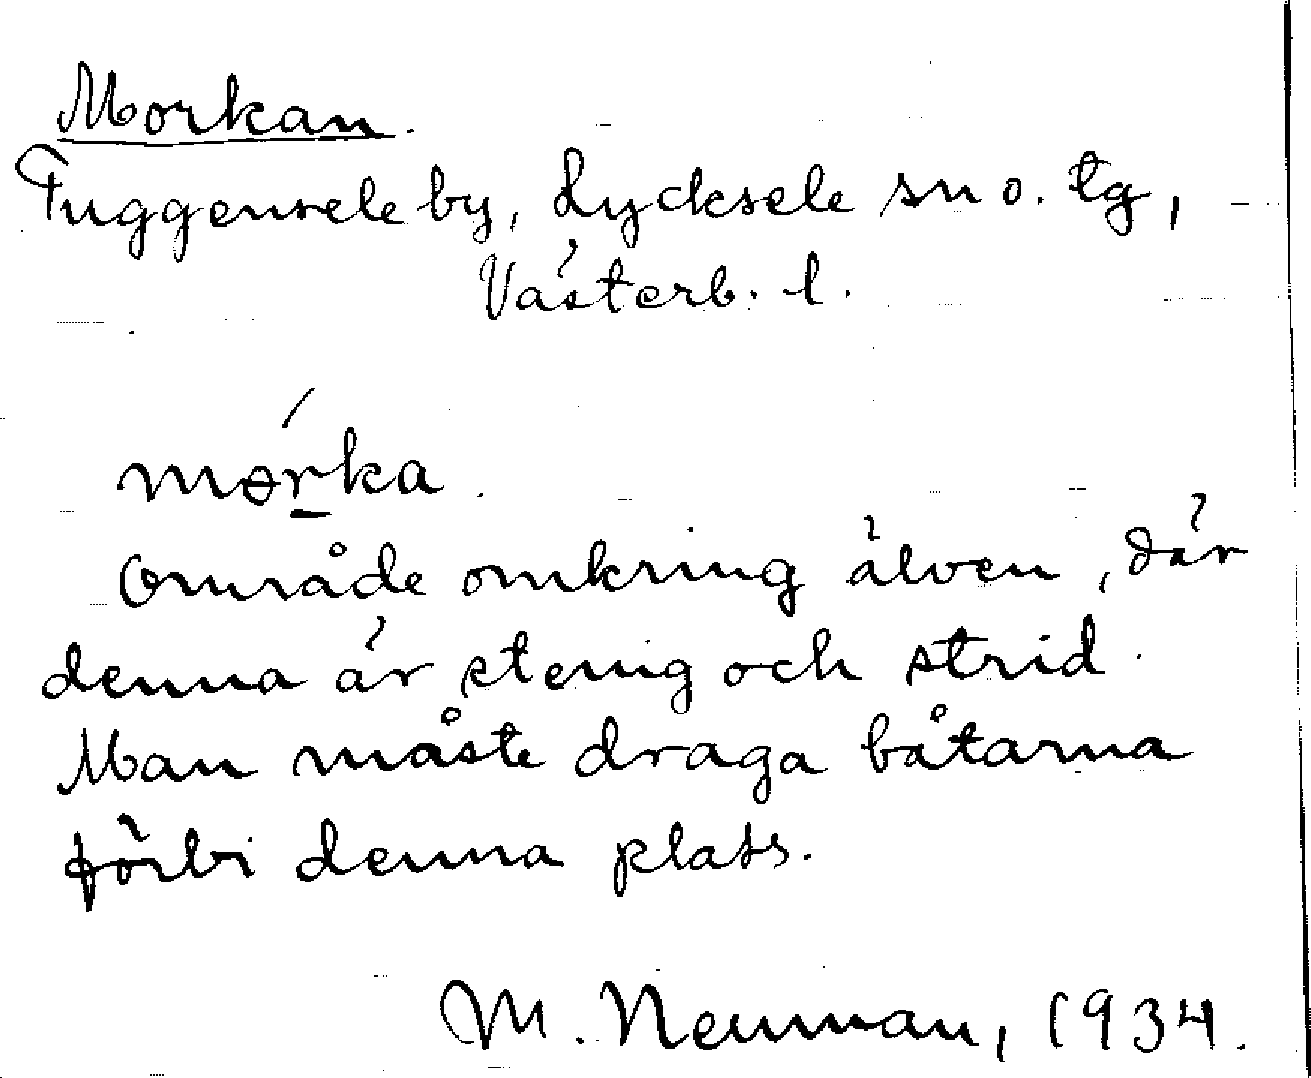 Morkan.
Tuggensele by, Lycksele sn o. tg,
Västerb. l.
mɵ́r̲ka.
Område omkring älven, där
denna är stenig och strid.
Man måste draga båtarna
förbi denna plats.
M. Neuman, 1934.